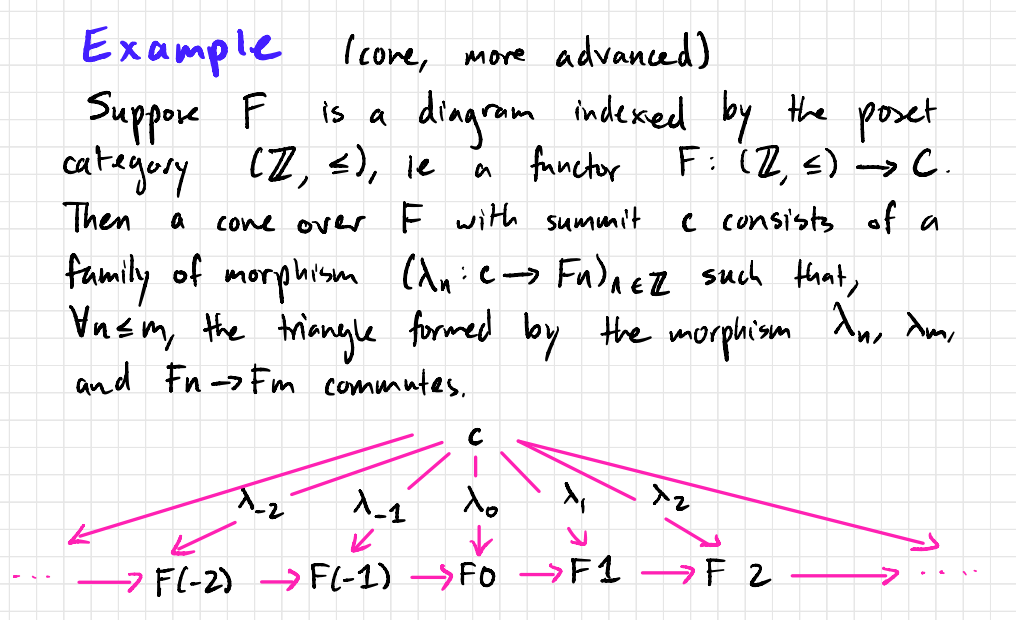 Example (cone, more advanced)
Suppose F is a diagram indexed by the poset
category (ℤ, ≤), ie a functor F: (ℤ, ≤) → C.
Then a cone over F with summit c consists of a
family of morphism (λₙ : c → Fn)ₙ∈ℤ such that,
∀n≤m, the triangle formed by the morphism λₙ, λₘ,
and Fn → Fm commutes.
c
λ₋₂ λ₋₁ λ₀ λ₁ λ₂
... → F(-2) → F(-1) → F0 → F1 → F 2 → ....